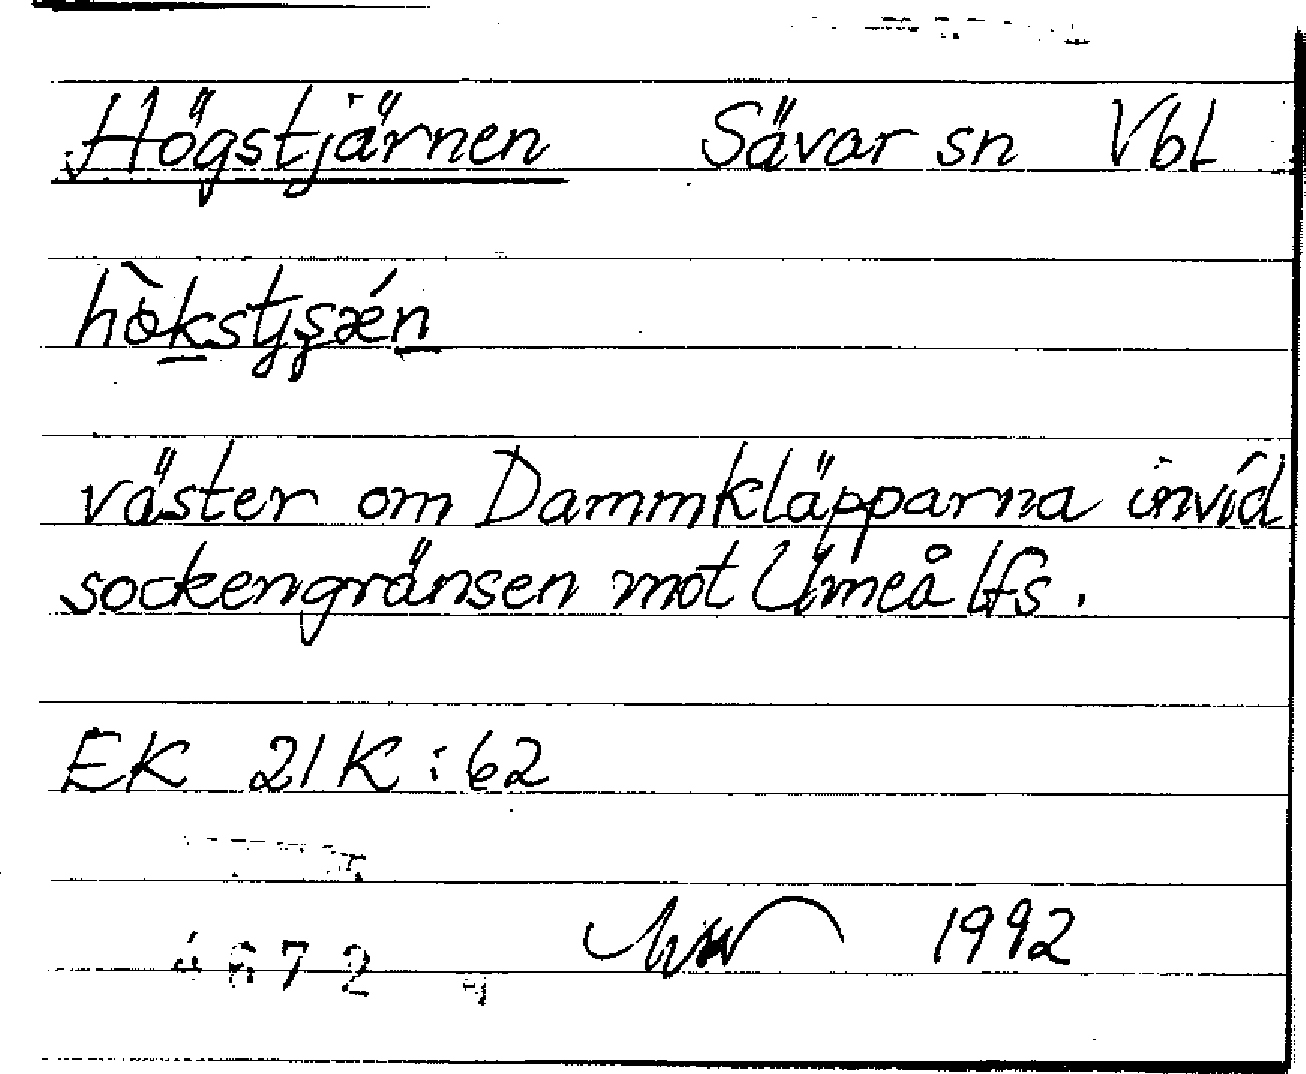 Högstjärnen Sävar sn Vbl
väster om Dammkläpparna invid
sockengränsen mot Umeå lfs.
EK 21K:62
672
1992